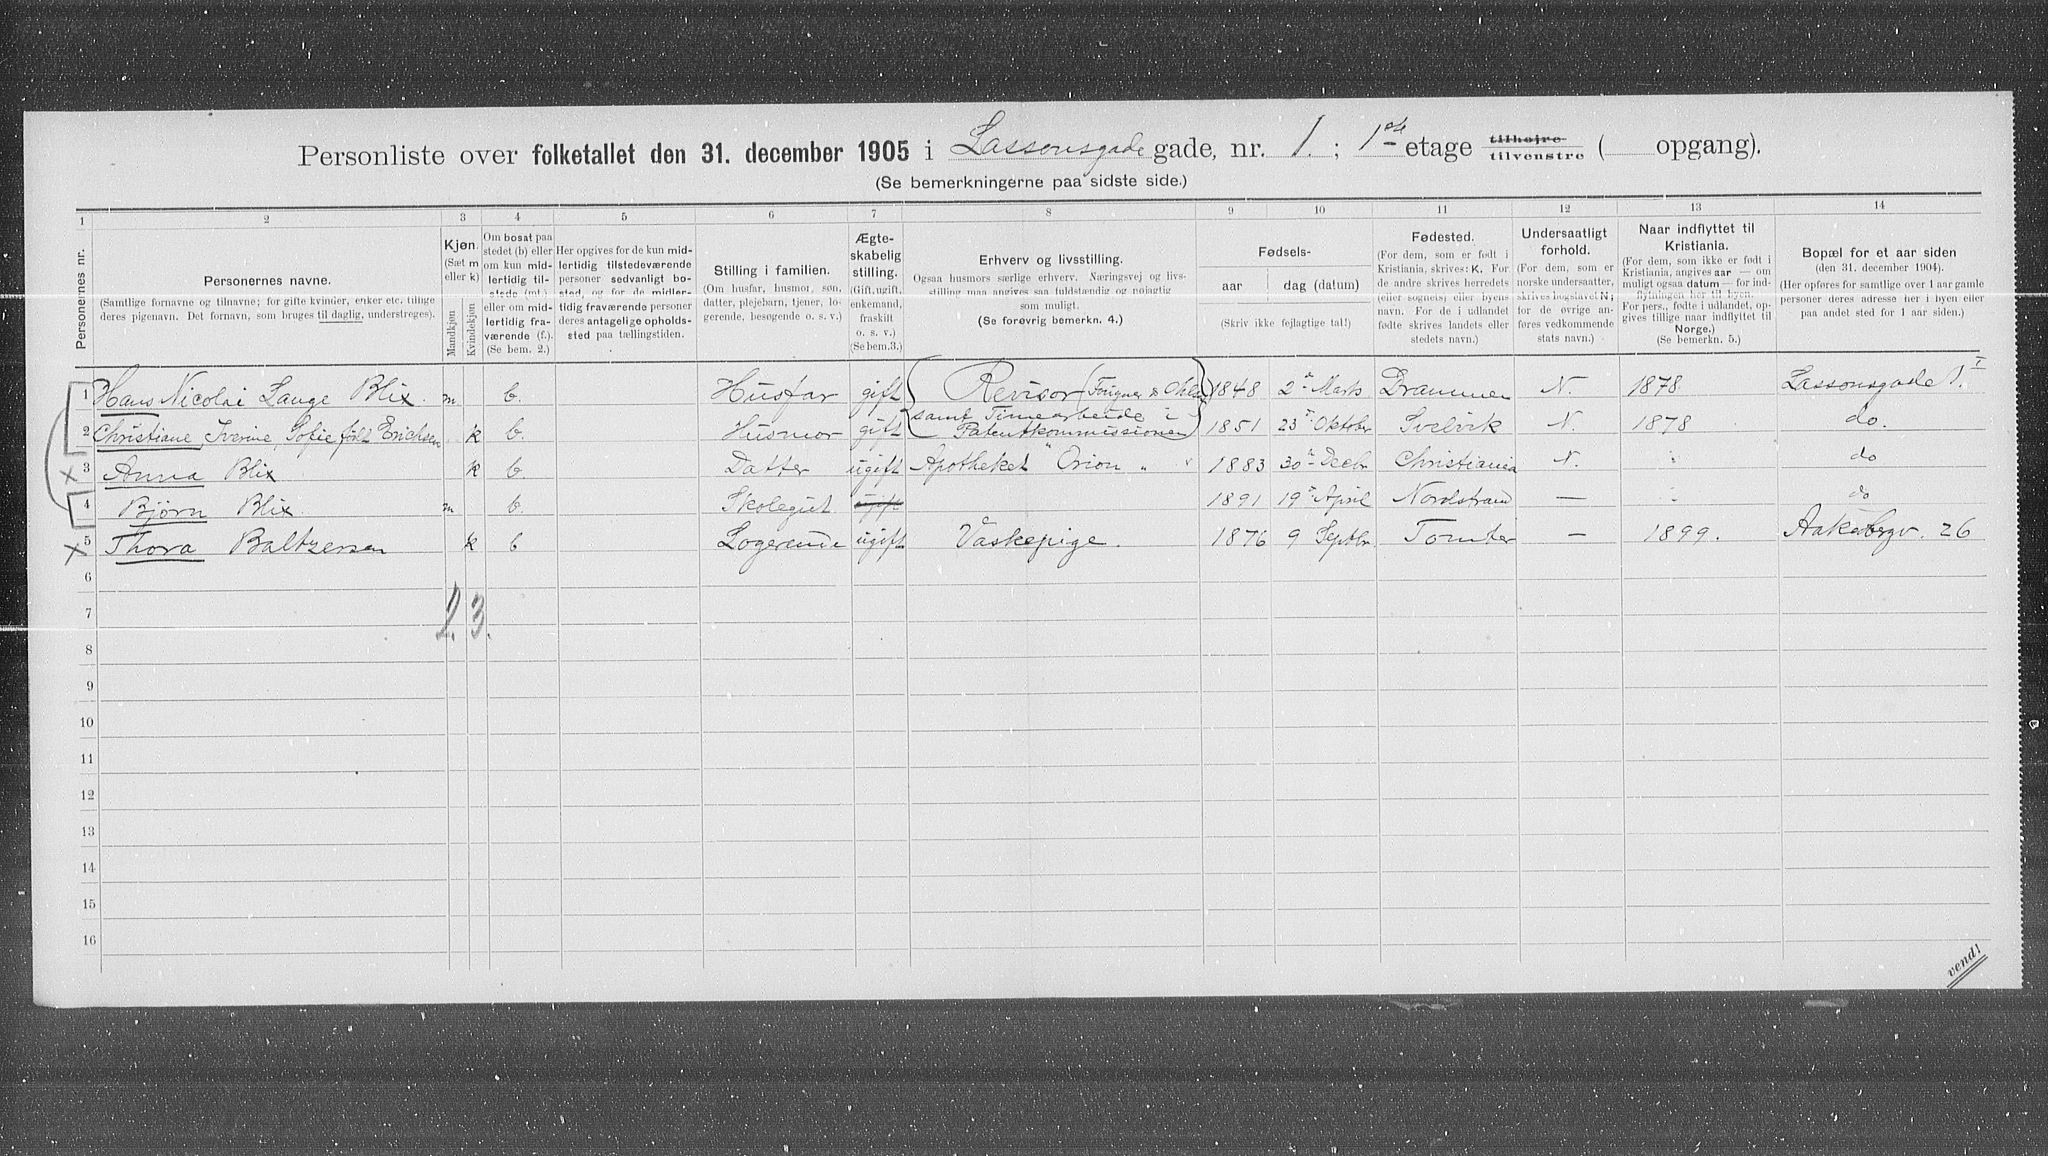 Personliste over folketallet den 31. december 1905 i Lassonsgade gade, nr. 1. ; 1ste etage tilhøjre tilvenstre ( opgang).
(Se bemerkningerne paa sidste side.)
1 2 3 4 5 6 7 8 9 10 11 12 13 14
Personernes nr.
Personernes navne.
(Samtlige fornavne og tilnavne; for gifte kvinder, enker etc. tillige
deres pigenavn. Det fornavn, som bruges til daglig, understreges).
Kjøn.
(Sæt m
eller k)
Mandkjøn
Kvindekjøn
Om bosat paa
stedet (b) eller
om kun mid-
lertidig til-
stede (mt.)
eller om mid-
lertidig fra-
værende (f.).
(Se bem. 2.)
Her opgives for de kun mid-
lertidig tilstedeværende
personer sedvanligt bo-
sted, og for de midler-
tidig fraværende personer
deres antagelige opholds-
sted paa tællingstiden.
Stilling i familien.
(Om husfar, husmor, søn,
datter, plejebarn, tjener, lo-
gerende, besøgende o. s. v.)
Ægte-
skabelig
stilling.
(Gift, ugift,
enkemand,
fraskilt
o. s. v.)
(Se bem. 3.)
Erhverv og livsstilling.
Ogsaa husmors særlige erhverv. Næringsvej og livs-
stilling maa angives saa fuldstændig og nøjagtig
som muligt.
(Se forøvrig bemerkn. 4.)
Fødsels-
aar
dag (datum)
(Skriv ikke fejlagtige tal!)
Fødested.
(For dem, som er født i
Kristiania, skrives: K. For
de andre skrives herredets
(eller sognets) eller byens
navn. For de i udlandet
fødte skrives landets eller
stedets navn.)
Undersaatligt
forhold.
(For dem, som er
norske undersaatter,
skrives bogstavet N;
for de øvrige an-
føres vedkommende
stats navn.)
Naar indflyttet til
Kristiania.
(For dem, som ikke er født i
Kristiania, angives aar — om
muligt ogsaa datum — for ind-
flytningen her til byen.
For pers., født i udlandet, op-
gives tillige naar indflyttet til
Norge.)
(Se bemerkn. 5.)
Bopæl for et aar siden
(den 31. december 1904).
(Her opføres for samtlige over 1 aar gamle
personer deres adresse her i byen eller
paa andet sted for 1 aar siden.)
1 Hans Nicolai Lange Blix. m b. Husfar gift Revisor 1848 2 Marts Drammen N. 1878 Lassonsgade 1. I
2 Christiane Iverine Sofie født Erichsen k b. Husmor gift samt Timearbeide i Patentkommissionen 1851 23 Oktober Svelvik N. 1878 do.
X 3 Anna Blix k b. Datter ugift Apotheket "Orion" 1883 30 Decbr Christiania N. do
4 Bjørn Blix m b. Skolegut ugift 1891 19 April Nordstrand — do
X 5 Thora Baltzersen k b Logerende ugift Vaskepige. 1876 9 Septbr. Tomter — 1899. Aakebergv. 26
6
7 2. 3.
8
9
10
11
12
13
14
15
16
vend!